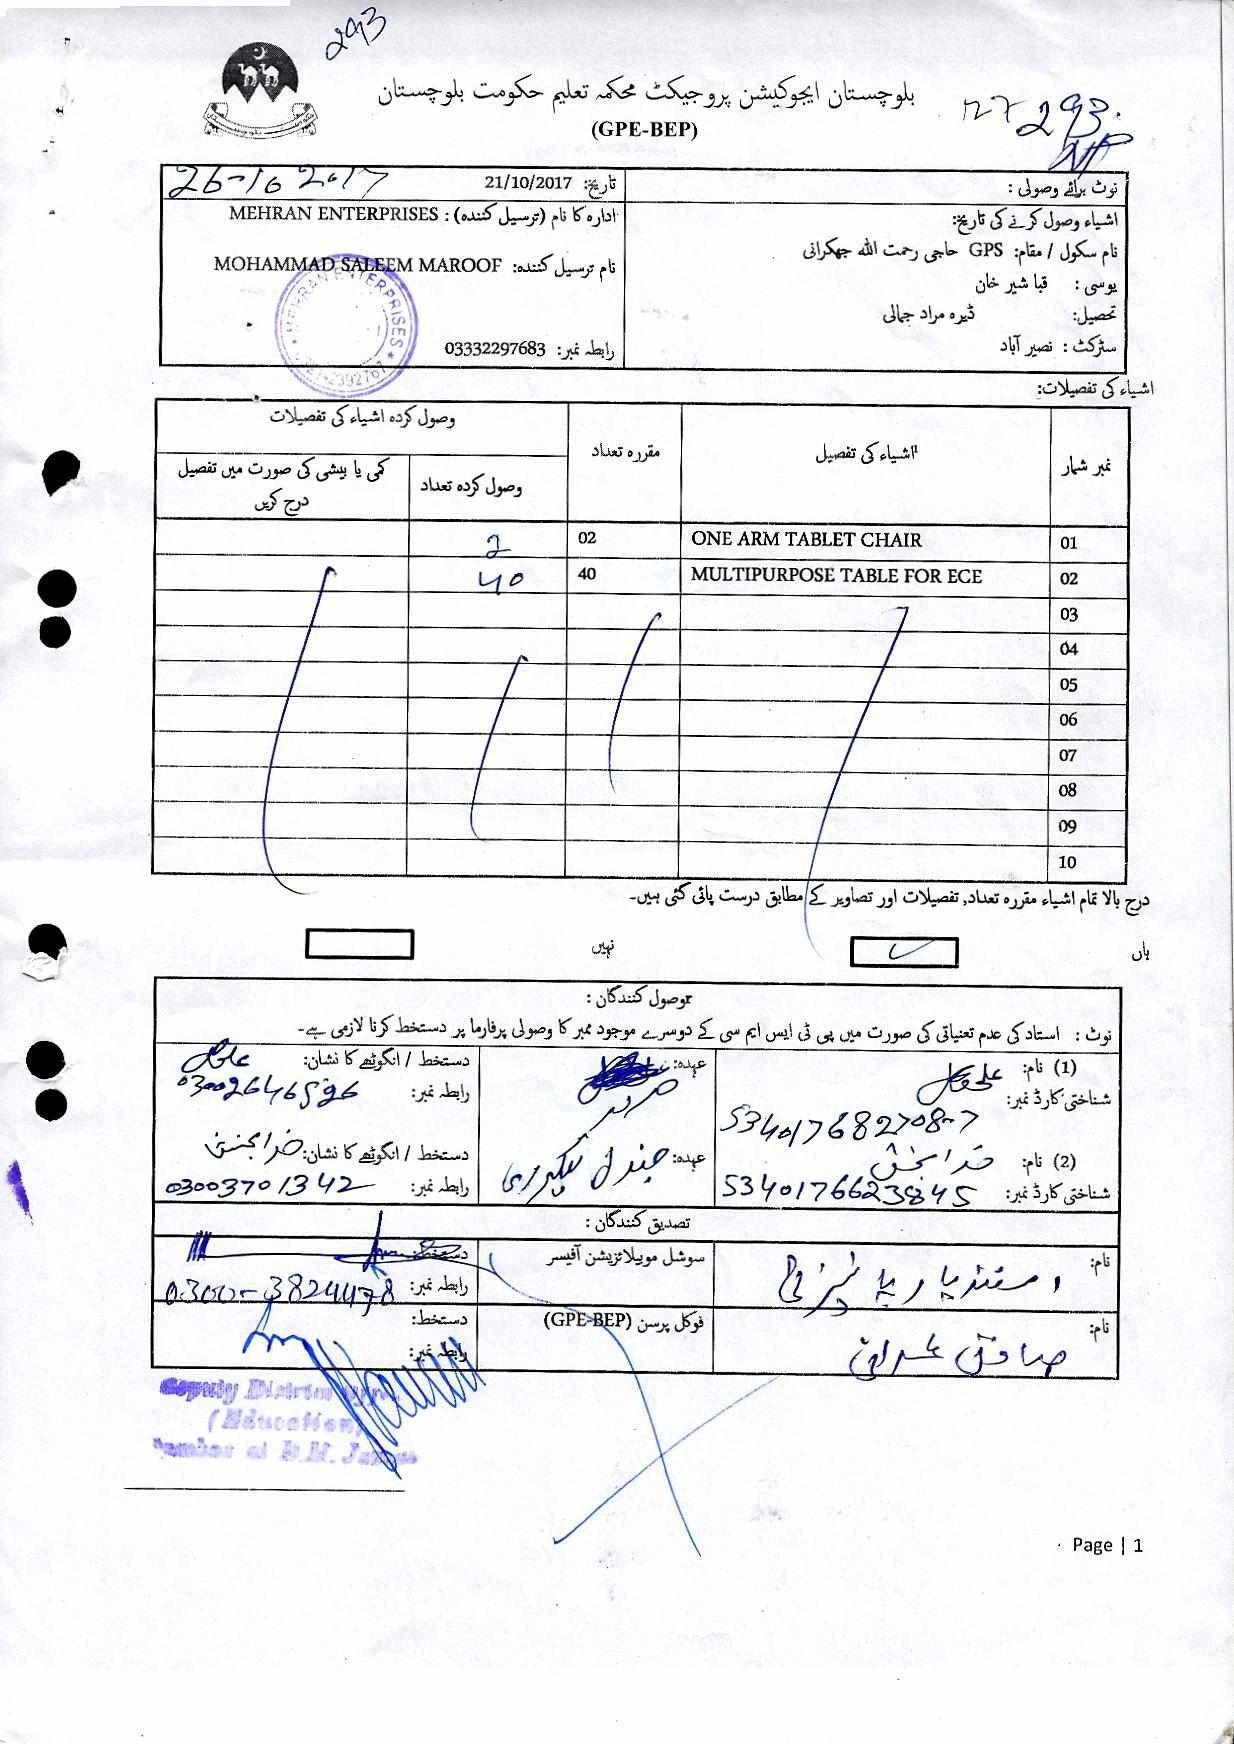 293
بلوچستان ایجوکیشن پروجیکٹ محکمہ تعلیم حکومت بلوچستان
(GPE-BEP)
293
نوٹ برائے وصولی :
تاریخ: 21/10/2017
26-10 2017
اشیاء وصول کرنے کی تاریخ:
نام سکول / مقام: GPS حاجی رحمت اللہ جھکرانی
یوسی : قبا شیر خان
تحصیل: ڈیرہ مراد جمالی
سٹرکٹ : نصیر آباد
ادارہ کا نام (ترسیل کنندہ) : MEHRAN ENTERPRISES
نام ترسیل کنندہ: MOHAMMAD SALEEM MAROOF
رابطہ نمبر: 03332297683
MEHRAN ENTERPRISES
اشیاء کی تفصیلات:
نمبر شمار اشیاء کی تفصیل مقررہ تعداد وصول کردہ اشیاء کی تفصیلات
وصول کردہ تعداد کمی یا بیشی کی صورت میں تفصیل درج کریں
01 ONE ARM TABLET CHAIR 02 2
02 MULTIPURPOSE TABLE FOR ECE 40 40
03
04
05
06
07
08
09
10
درج بالا تمام اشیاء مقررہ تعداد, تفصیلات اور تصاویر کے مطابق درست پائی گئی ہیں۔
ہاں نہیں
وصول کنندگان :
نوٹ : استاد کی عدم تعنیاتی کی صورت میں پی ٹی ایس ایم سی کے دوسرے موجود ممبر کا وصولی پرفارما پر دستخط کرنا لازمی ہے۔
(1) نام: علی عہدہ: دستخط / انگوٹھے کا نشان:
شناختی کارڈ نمبر: 534017682708-7 رابطہ نمبر: 03002646596
(2) نام: خدا بخش عہدہ: جنرل سیکریری دستخط / انگوٹھے کا نشان: خدا بخش
شناختی کارڈ نمبر: 5340176623845 رابطہ نمبر: 03003701342
تصدیق کنندگان :
نام: اسفند یار سوشل موبیلائزیشن آفیسر دستخط:
رابطہ نمبر: 0300-3824478
نام: صادق عمرانی فوکل پرسن (GPE-BEP) دستخط:
رابطہ نمبر:
Deputy District
(Education)
Page | 1